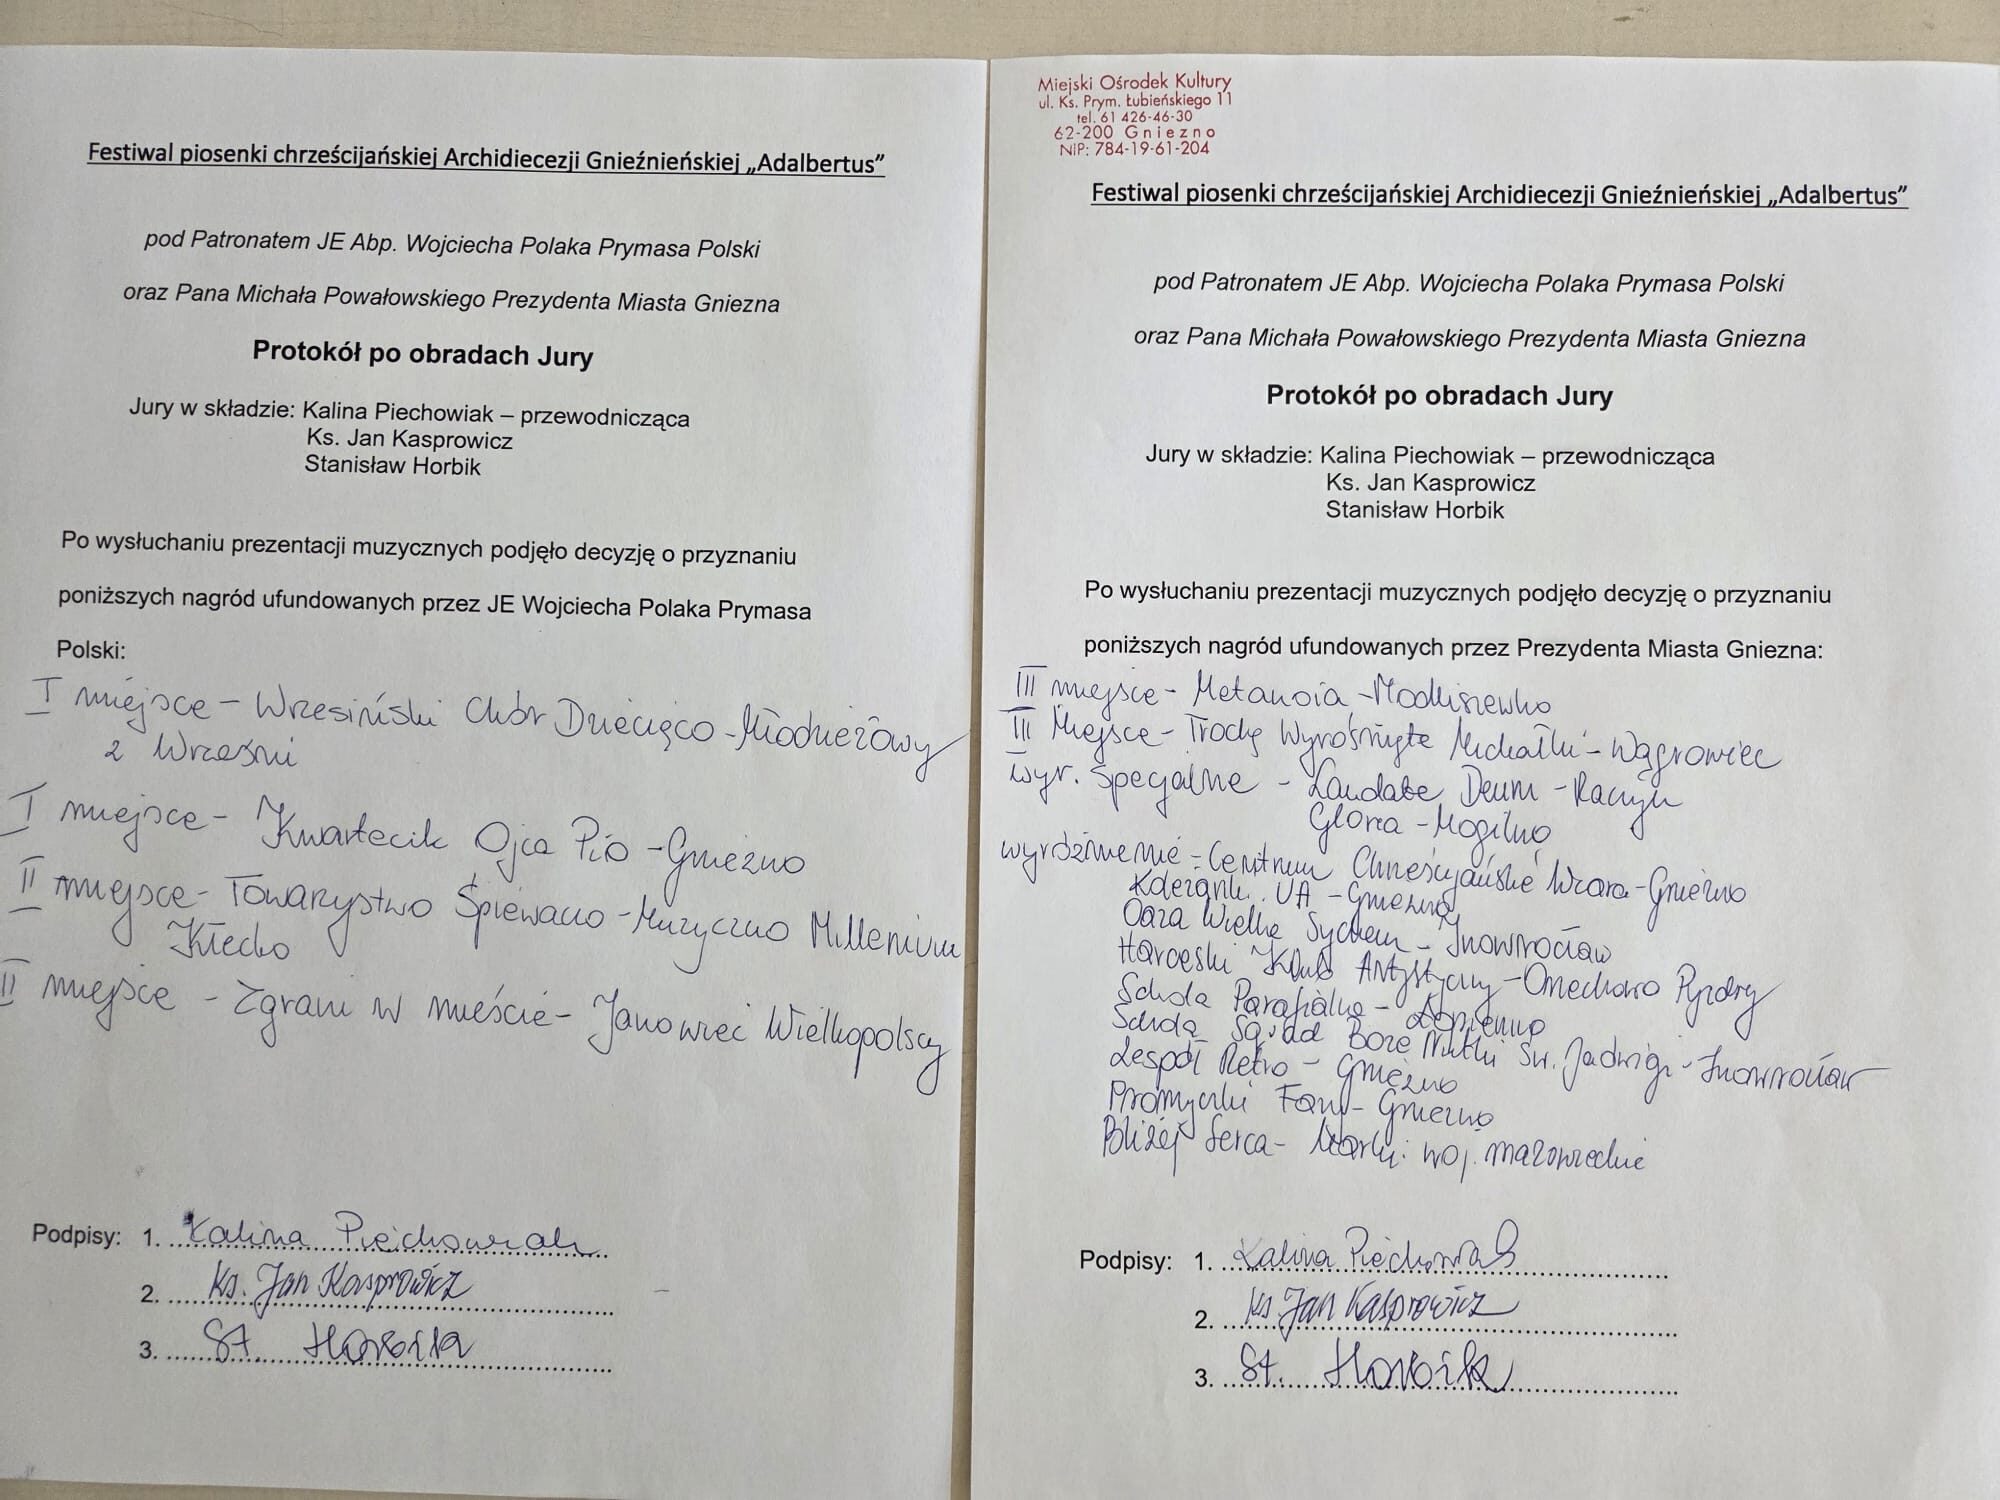 Festiwal piosenki chrześcijańskiej Archidiecezji Gnieźnieńskiej „Adalbertus”
pod Patronatem JE Abp. Wojciecha Polaka Prymasa Polski
oraz Pana Michała Powałowskiego Prezydenta Miasta Gniezna
Protokół po obradach Jury
Jury w składzie: Kalina Piechowiak – przewodnicząca
Ks. Jan Kasprowicz
Stanisław Horbik
Po wysłuchaniu prezentacji muzycznych podjęło decyzję o przyznaniu
poniższych nagród ufundowanych przez JE Wojciecha Polaka Prymasa
Polski:
I miejsce – Wrzesiński Chór Dziecięco-Młodzieżowy
z Wrześni
I miejsce – Kwartecik Ojca Pio – Gniezno
II miejsce – Towarzystwo Śpiewaczo-Muzyczno Millenium
Kłecko
II miejsce – Zgrani w mieście – Janowiec Wielkopolscy
Podpisy: 1. Kalina Piechowiak
2. Ks. Jan Kasprowicz
3. St. Horbik
Miejski Ośrodek Kultury
ul. Ks. Prym. Łubieńskiego 11
tel. 61 426-46-30
62-200 Gniezno
NIP: 784-19-61-204
Festiwal piosenki chrześcijańskiej Archidiecezji Gnieźnieńskiej „Adalbertus”
pod Patronatem JE Abp. Wojciecha Polaka Prymasa Polski
oraz Pana Michała Powałowskiego Prezydenta Miasta Gniezna
Protokół po obradach Jury
Jury w składzie: Kalina Piechowiak – przewodnicząca
Ks. Jan Kasprowicz
Stanisław Horbik
Po wysłuchaniu prezentacji muzycznych podjęło decyzję o przyznaniu
poniższych nagród ufundowanych przez Prezydenta Miasta Gniezna:
III miejsce – Metanoia – Modliszewko
III Miejsce – Trochę Wyrośnięte Michałki – Wągrowiec
wyr. specjalne – Laudate Deum – Raczyn
Gloria – Mogilno
wyróżnienie – Centrum Chrześcijańskie Wiara – Gniezno
UA – Gniezno
Oaza Wielka Sychem – Inowrocław
Harcerski Klub Artystyczny – Pyzdry
Schola Parafialna – Łopienno
Schola Squad Boże Nutki Św. Jadwigi – Inowrocław
Zespół Retro – Gniezno
Promyczki Fary – Gniezno
Bliżej Serca – Marki woj. mazowieckie
Podpisy: 1. Kalina Piechowiak
2. Ks. Jan Kasprowicz
3. St. Horbik